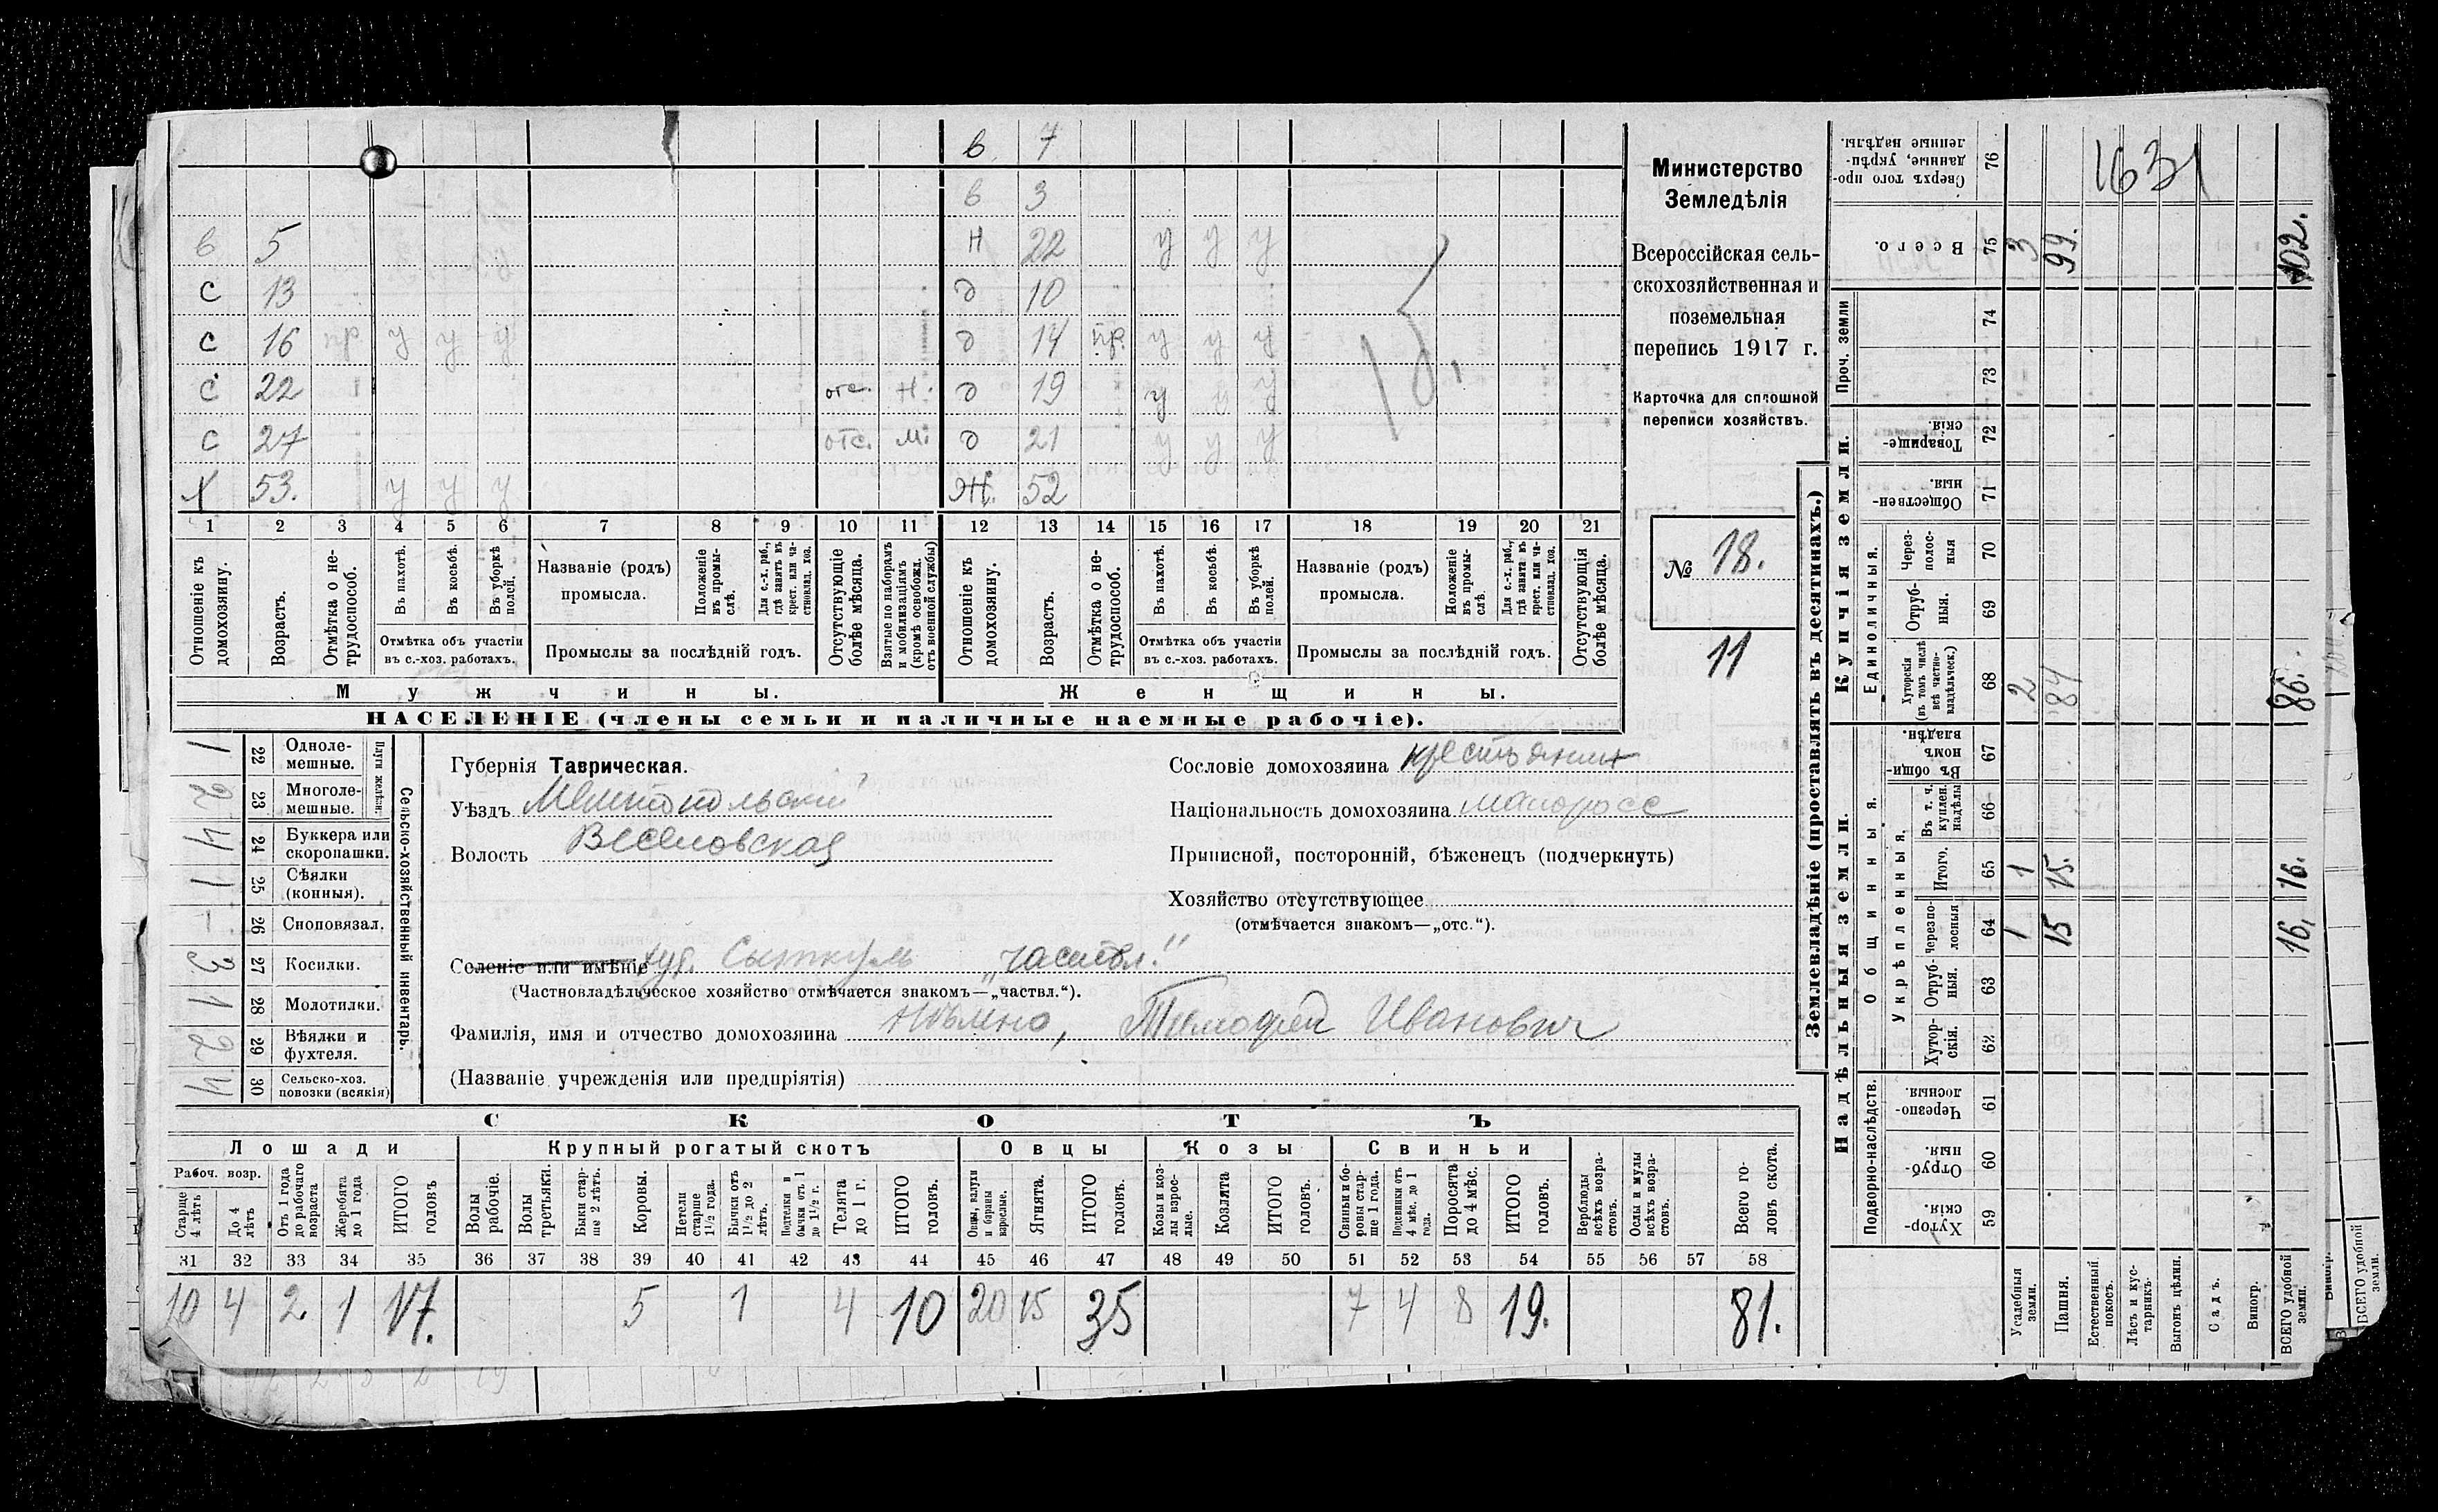 в 7
в 3
в 5 Н 22 у у у
с 13 д 10
с 16 нр. у у у д 14 нр. у у у
с 22 отс. н. д 19 у у у
с 27 отс. м. д 21 у у у
Х 53. у у у Ж. 52
1 2 3 4 5 6 7 8 9 10 11 12 13 14 15 16 17 18 19 20 21
Отношеніе къ домохозяину.
Возрастъ.
Отмѣтка о нетрудоспособ.
Въ пахотѣ.
Въ косьбѣ.
Въ уборкѣ полей.
Отмѣтка объ участіи
въ с.-хоз. работахъ.
Названіе (родъ)
промысла.
Положеніе въ промыслѣ.
Для с.-х. раб., гдѣ занятъ въ крест. или частновлад. хоз.
Промыслы за послѣдній годъ.
Отсутствующіе болѣе мѣсяца.
Взятые по наборамъ и мобилизаціямъ (кромѣ освобожд. отъ военной службы)
Отношеніе къ домохозяину.
Возрастъ.
Отмѣтка о нетрудоспособ.
Въ пахотѣ.
Въ косьбѣ.
Въ уборкѣ полей.
Отмѣтка объ участіи
въ с.-хоз. работахъ.
Названіе (родъ)
промысла.
Положеніе въ промыслѣ.
Для с.-х. раб., гдѣ занята въ крест. или частновлад. хоз.
Промыслы за послѣдній годъ.
Отсутствующія болѣе мѣсяца.
Мужчины. Женщины.
НАСЕЛЕНІЕ (члены семьи и наличные наемные рабочіе).
Министерство
Земледѣлія
Всероссійская сель-
скохозяйственная и
поземельная
перепись 1917 г.
Карточка для сплошной
переписи хозяйствъ.
№ 18.
11
Сельско-хозяйственный инвентарь.
Плуги желѣзн.
1 22 Одноле-
мешные.
2 23 Многоле-
мешные.
4 24 Буккера или
скоропашки.
1 25 Сѣялки
(конныя).
- 26 Сноповязал.
3 27 Косилки.
1 28 Молотилки.
2 29 Вѣялки и
фухтеля.
4 30 Сельско-хоз.
повозки (всякія)
Губернія Таврическая.
Уѣздъ Мелитопольский
Волость Веселовская
Сословіе домохозяина крестьянин
Національность домохозяина малоросс
Приписной, посторонній, бѣженецъ (подчеркнуть)
Хозяйство отсутствующее
(отмѣчается знакомъ—„отс.“).
Селеніе или имѣніе хут. „частвл.“
(Частновладѣльческое хозяйство отмѣчается знакомъ—„частвл.“).
Фамилія, имя и отчество домохозяина Тимофей Иванович
(Названіе учрежденія или предпріятія)
СКОТЪ
Лошади Крупный рогатый скотъ Овцы Козы Свиньи
Рабоч. возр.
Старше 4 лѣтъ
До 4 лѣтъ
Отъ 1 года до рабочаго возраста
Жеребята до 1 года
ИТОГО головъ
Волы рабочіе.
Волы третьяки.
Быки старше 2 лѣтъ.
Коровы.
Нетели старше 1½ года.
Бычки отъ 1½ до 2 лѣтъ.
Подтелки и бычки отъ 1 до 1½ г.
Телята до 1 г.
ИТОГО головъ.
Овцы, валухи и бараны взрослые.
Ягнята.
ИТОГО головъ.
Козы и козлы взрослые.
Козлята
ИТОГО головъ.
Свиньи и боровы старше 1 года.
Подсвинки отъ 4 мѣс. до 1 года.
Поросята до 4 мѣс.
ИТОГО головъ.
Верблюды всѣхъ возрастовъ.
Ослы и мулы всѣхъ возрастовъ.
Всего головъ скота.
31 32 33 34 35 36 37 38 39 40 41 42 43 44 45 46 47 48 49 50 51 52 53 54 55 56 57 58
10 4 2 1 17. 5 1 4 10 20 15 35 7 4 8 19. 81.
Землевладѣніе (проставлять въ десятинахъ.)
Надѣльныя земли. Купчія земли. Проч. земли
Подворно-наслѣдств. Общинныя. Единоличныя.
Укрѣпленныя.
Хуторскія. 59
Отрубныя. 60
Черезполосныя 61
Хуторскія. 62
Отрубныя. 63
Черезполосныя 64 1 15 16,
Итого. 65 1 15. 16.
Въ т. ч. куплен. надѣлы 66
Въ общинномъ владѣн. 67
Хуторскія (въ томъ числѣ всѣ частновладѣльческ.) 68 2 84 86.
Отрубныя. 69
Черезполосныя 70
Общественныя. 71
Товарищескія. 72
73
74
Всего. 75 3 99. 102.
Сверхъ того проданные, укрѣпленные надѣлы. 76
1631
Усадебныя земли.
Пашня.
Естественный покосъ.
Лѣсъ и кустарникъ.
Выгонъ цѣлин.
Садъ.
Виногр.
ВСЕГО удобной земли.
Виногр.
ВСЕГО удобной земли.